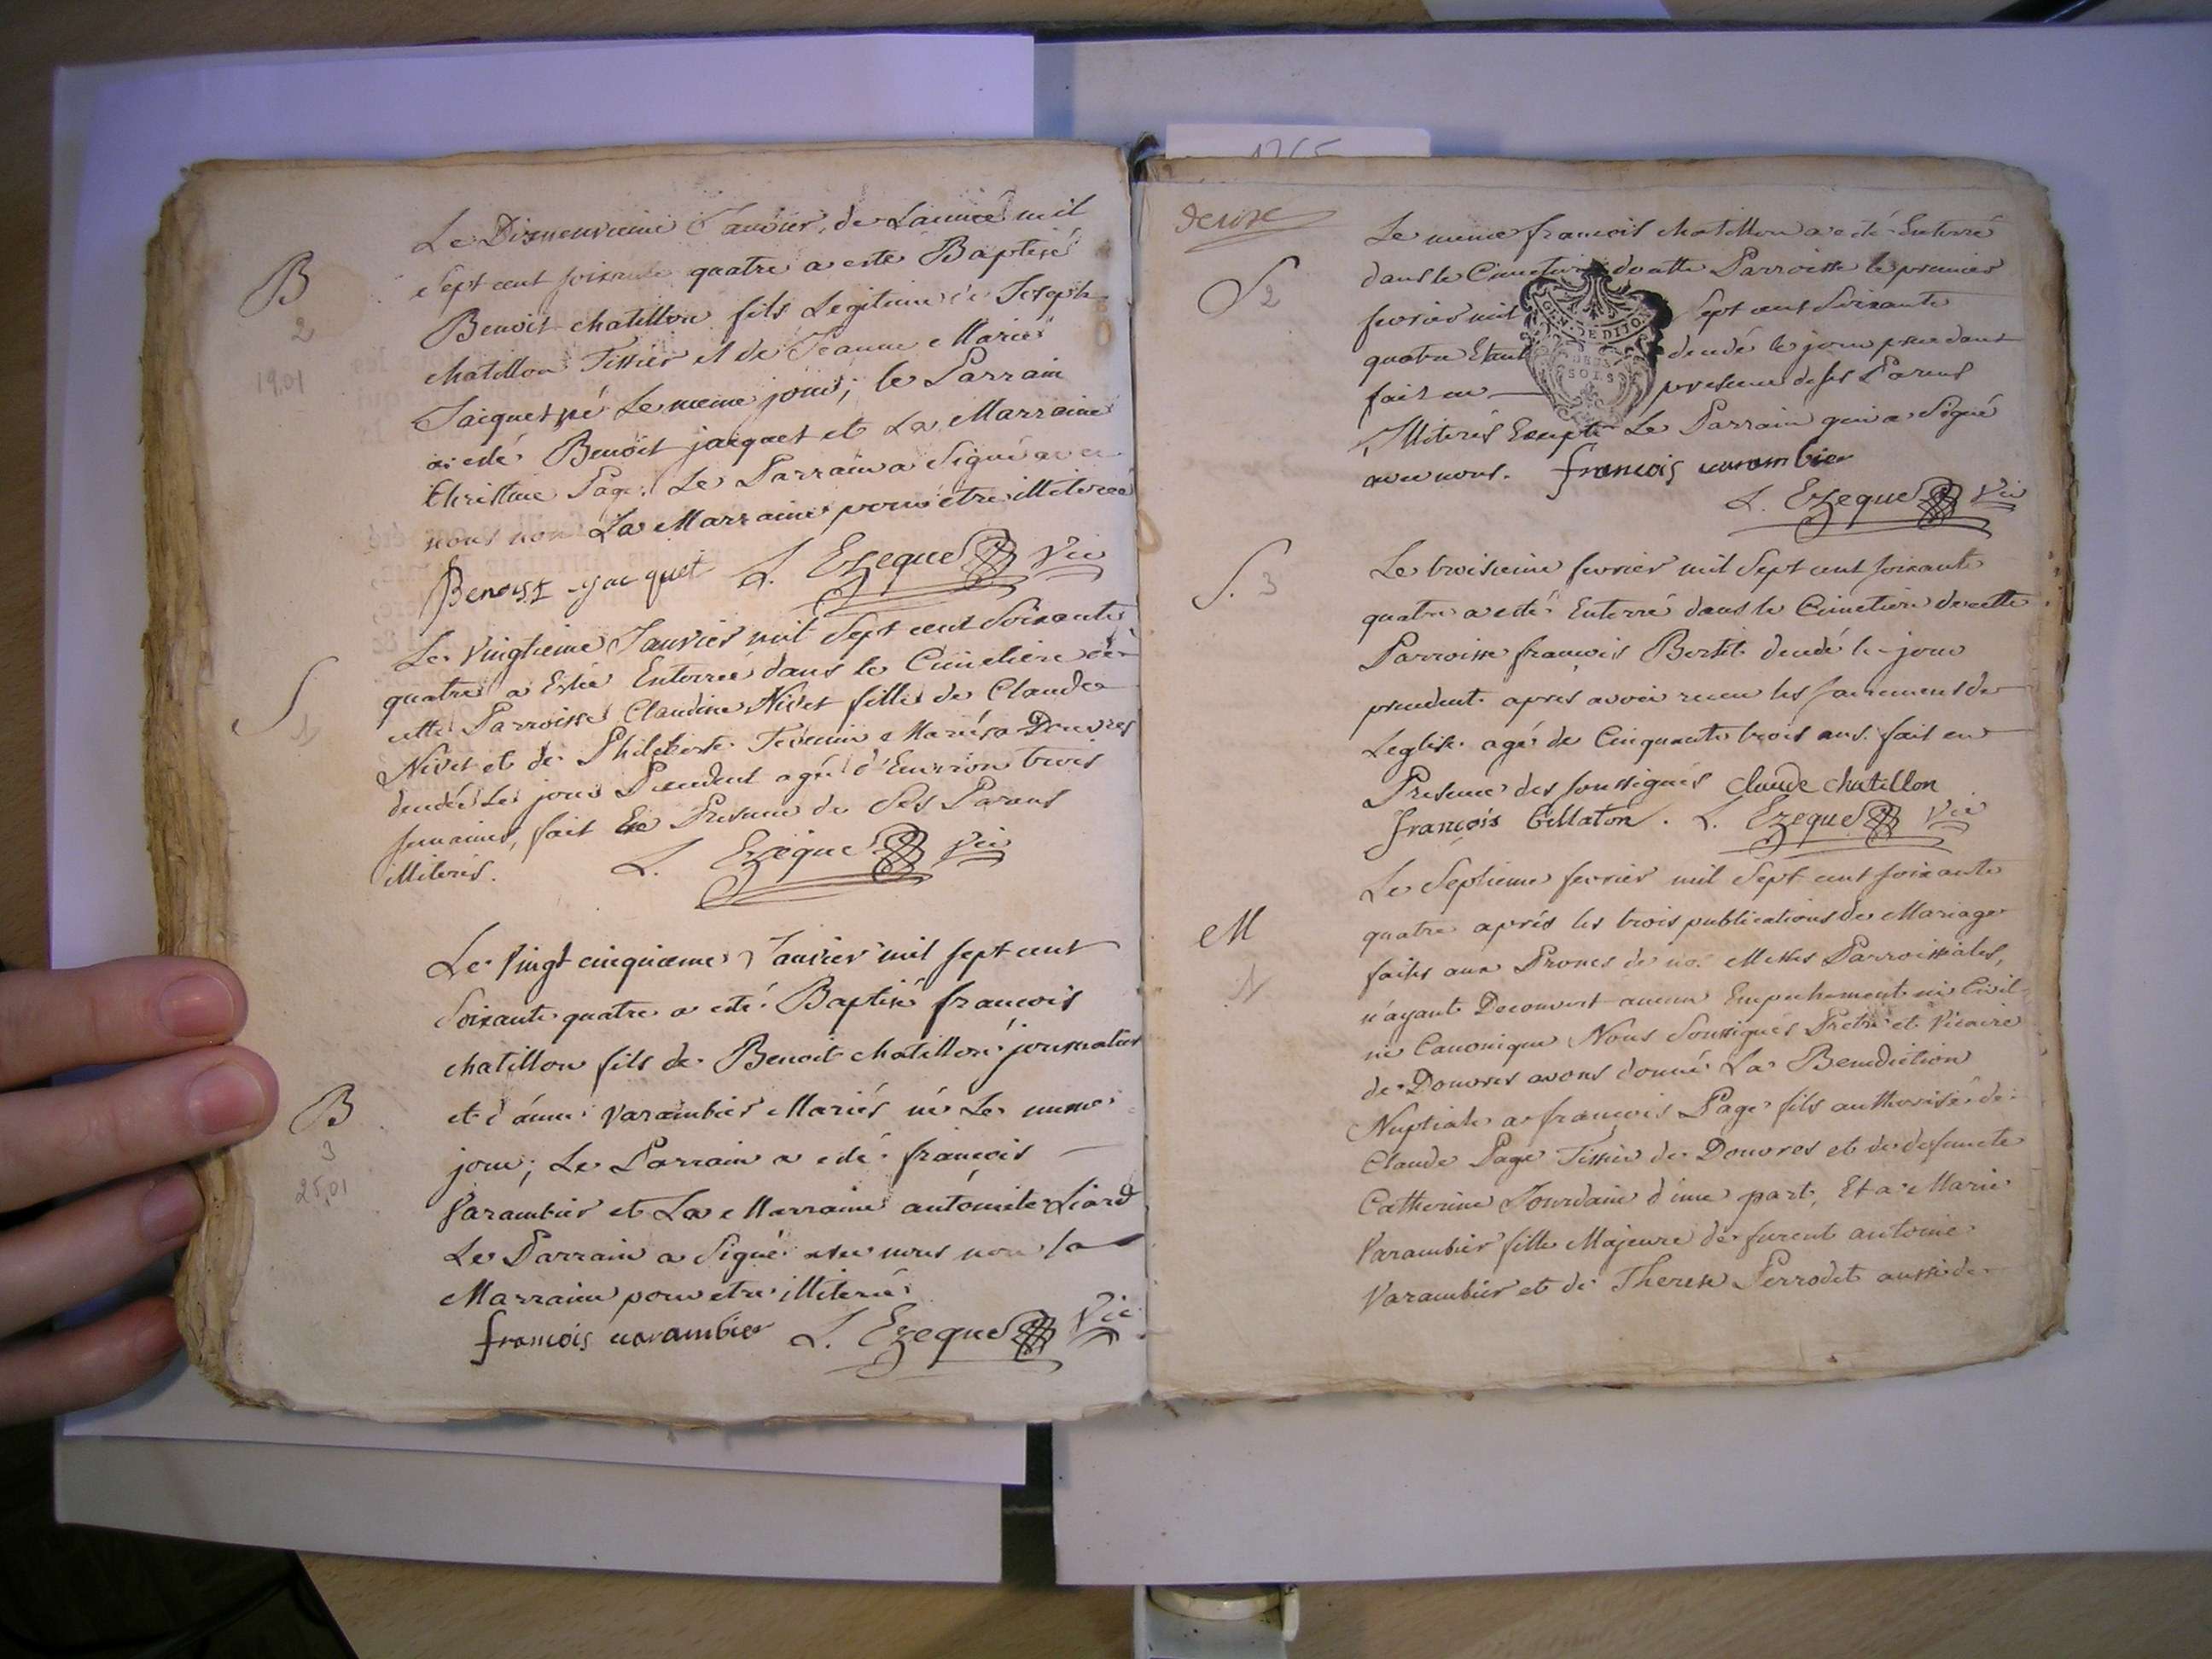 B
2
19.01
Le Dixneuvieme Janvier, de Lannée mil
Sept cent soixante quatre a esté Baptisé
Benoit chatillon fils Legitime de Joseph
chatillon Tissier et de Jeanne Marie
Jacquet né Le meme jour; le Parrain
a esté Benoit jacquet et La Marraine
Christine Page. Le Parrain a Signé avec
nous non La Marraine pour étre illiterée
Benoist jacquet L. Ezeque Vic
S 1
Le Vingtieme Janvier mil Sept cent Soixante
quatre a Estée Enterrée dans le Cimetiere de
cette Parroisse Claudine Nivet fille de Claude
Nivet et de Philiberte Mariés a Douvres
decedée Le jour Precedent agée d'Environ trois
semaines, fait En Presence de Ses Parens
illiterés. L. Ezeque Vic
B
3
25.01
Le Vingt cinquieme Janvier mil sept cent
Soixante quatre a esté Baptisé francois
chatillon fils de Benoit chatillon journalier
et d'anne Varambier Mariés né Le meme
jour; Le Parrain a esté francois
Varambier et La Marraine antoinete Liard
Le Parrain a Signé avec nous non la
Marraine pour etre illiterée
francois varambier L. Ezeque Vic
1765
deuxe
S 2
Le meme francois chatillon a eté Enterré
dans le Cimetiere de cette Parroisse le premier
fevrier mil Sept cent Soixante
quatre Etant decedé le jour precedant
fait en presence de ses Parens
illiterés Excepté Le Parrain qui a Signé
avec nous. francois varambier
L. Ezeque Vic
GEN. DE DIJON
SOLS
S. 3
Le troisieme fevrier mil Sept cent soixante
quatre a esté Enterré dans le Cimetiere de cette
Parroisse francois Bertet decedé le jour
precedent apres avoir receu les sacremens de
Leglise agé de Cinquante trois ans. fait en
Presence des soussignés claude chatillon
françois billaton. L. Ezeque Vic
M
N
Le Septieme fevrier mil Sept cent soixante
quatre aprés les trois publications de Mariage
faites aux Prones de nos Messes Parroissiales,
n'ayant Decouvert aucun Empechement ni Civil
ni Canonique Nous Soussignés Pretre et Vicaire
de Douvres avons donné La Benediction
Nuptiale a francois Page fils authorisé de
Claude Page Tissier de Douvres et de defuncte
Catherine Jourdain d'une part, Et a Marie
Varambier fille Majeure de furent antoine
Varambier et de Therese Perrodet aussi de